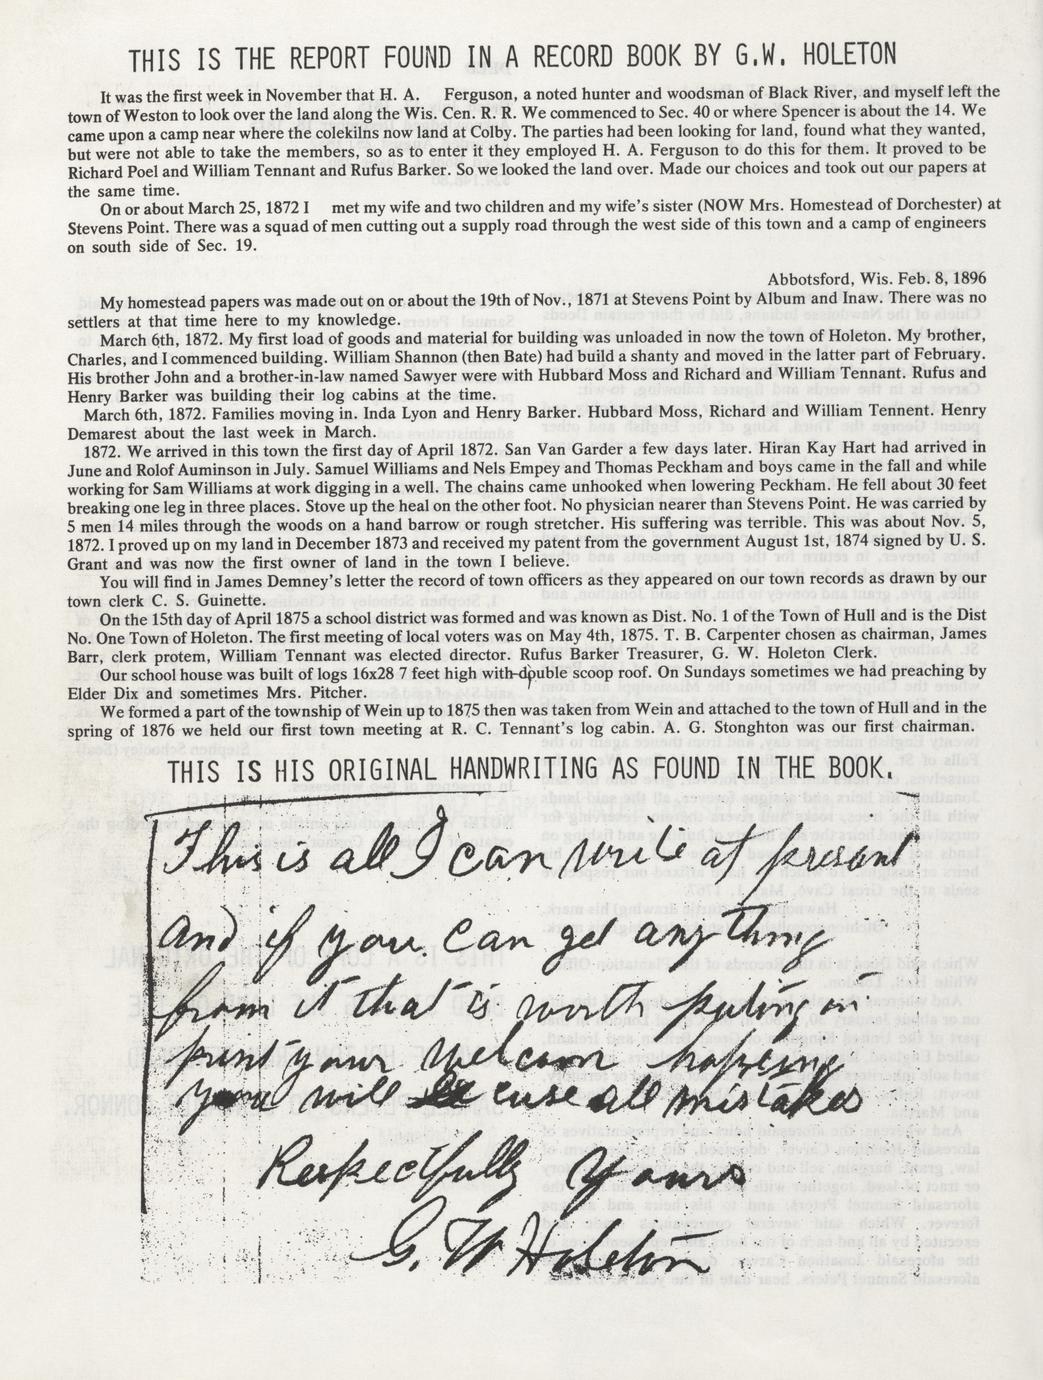 THIS IS THE REPORT FOUND IN A RECORD BOOK BY G.W. HOLETON
It was the first week in November that H. A. Ferguson, a noted hunter and woodsman of Black River, and myself left the
town of Weston to look over the land along the Wis. Cen. R. R. We commenced to Sec. 40 or where Spencer is about the 14. We
came upon a camp near where the colekilns now land at Colby. The parties had been looking for land, found what they wanted,
but were not able to take the members, so as to enter it they employed H. A. Ferguson to do this for them. It proved to be
Richard Poel and William Tennant and Rufus Barker. So we looked the land over. Made our choices and took out our papers at
the same time.
On or about March 25, 1872 I met my wife and two children and my wife's sister (NOW Mrs. Homestead of Dorchester) at
Stevens Point. There was a squad of men cutting out a supply road through the west side of this town and a camp of engineers
on south side of Sec. 19.
Abbotsford, Wis. Feb. 8, 1896
My homestead papers was made out on or about the 19th of Nov., 1871 at Stevens Point by Album and Inaw. There was no
settlers at that time here to my knowledge.
March 6th, 1872. My first load of goods and material for building was unloaded in now the town of Holeton. My brother,
Charles, and I commenced building. William Shannon (then Bate) had build a shanty and moved in the latter part of February.
His brother John and a brother-in-law named Sawyer were with Hubbard Moss and Richard and William Tennant. Rufus and
Henry Barker was building their log cabins at the time.
March 6th, 1872. Families moving in. Inda Lyon and Henry Barker. Hubbard Moss, Richard and William Tennent. Henry
Demarest about the last week in March.
1872. We arrived in this town the first day of April 1872. San Van Garder a few days later. Hiran Kay Hart had arrived in
June and Rolof Auminson in July. Samuel Williams and Nels Empey and Thomas Peckham and boys came in the fall and while
working for Sam Williams at work digging in a well. The chains came unhooked when lowering Peckham. He fell about 30 feet
breaking one leg in three places. Stove up the heal on the other foot. No physician nearer than Stevens Point. He was carried by
5 men 14 miles through the woods on a hand barrow or rough stretcher. His suffering was terrible. This was about Nov. 5,
1872. I proved up on my land in December 1873 and received my patent from the government August 1st, 1874 signed by U. S.
Grant and was now the first owner of land in the town I believe.
You will find in James Demney's letter the record of town officers as they appeared on our town records as drawn by our
town clerk C. S. Guinette.
On the 15th day of April 1875 a school district was formed and was known as Dist. No. 1 of the Town of Hull and is the Dist
No. One Town of Holeton. The first meeting of local voters was on May 4th, 1875. T. B. Carpenter chosen as chairman, James
Barr, clerk protem, William Tennant was elected director. Rufus Barker Treasurer, G. W. Holeton Clerk.
Our school house was built of logs 16x28 7 feet high with double scoop roof. On Sundays sometimes we had preaching by
Elder Dix and sometimes Mrs. Pitcher.
We formed a part of the township of Wein up to 1875 then was taken from Wein and attached to the town of Hull and in the
spring of 1876 we held our first town meeting at R. C. Tennant's log cabin. A. G. Stonghton was our first chairman.
THIS IS HIS ORIGINAL HANDWRITING AS FOUND IN THE BOOK.
This is all I can write at present
and if you can get any thing
from it that is worth puting in
print your welcom hopeing
you will excuse all mistakes
Respectfully Yours
G. W Holeton